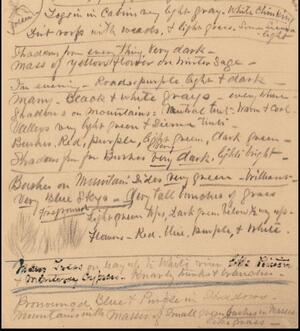 Logs in Cabin very light gray. White Chinking
Dirt roofs with weeds, & light grass.
light
green
Shadows from everything Very dark -
Mass of Yellow flower on Winter Sage -
In evening - Roads purple light & dark
Many - Black & white grays - every where
Shadows on Mountains: Neutral tint - Warm & Cool
Valleys very light green &
Bushes. Red, purple, light green, dark green -
Shadows from for Bushes very dark, lights bright -
Bushes on Mountain Sides very green - Williams -
Very Blue Skys - Very Tall bunches of grass
foreground
Light green tips, dark green below
Flowers - Red, Blue, purple, & White.
Many Trees on way up to White river
of Monterey Cypress. Knarly trunks & branches -
Pronounced Blue & Purple in Shadows -
Mountains with Masses of Small green bushes in Masses
grass -